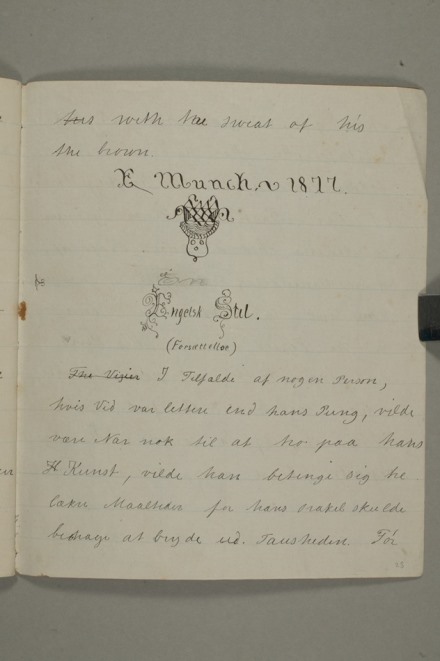 his with the sweat of his
the brown.
E Munch 1877.
En
Engelsk Stil.
(Forsættelse)
The Vizier I Tilfælde af nogen Person,
hvis Vid var lettere end hans Pung, vilde
være Nar nok til at tro paa hans
Kunst, vilde han betinge sig
lækre Maaltider for hans orakel skulde
behage at bryde ud. Tausheden. Før